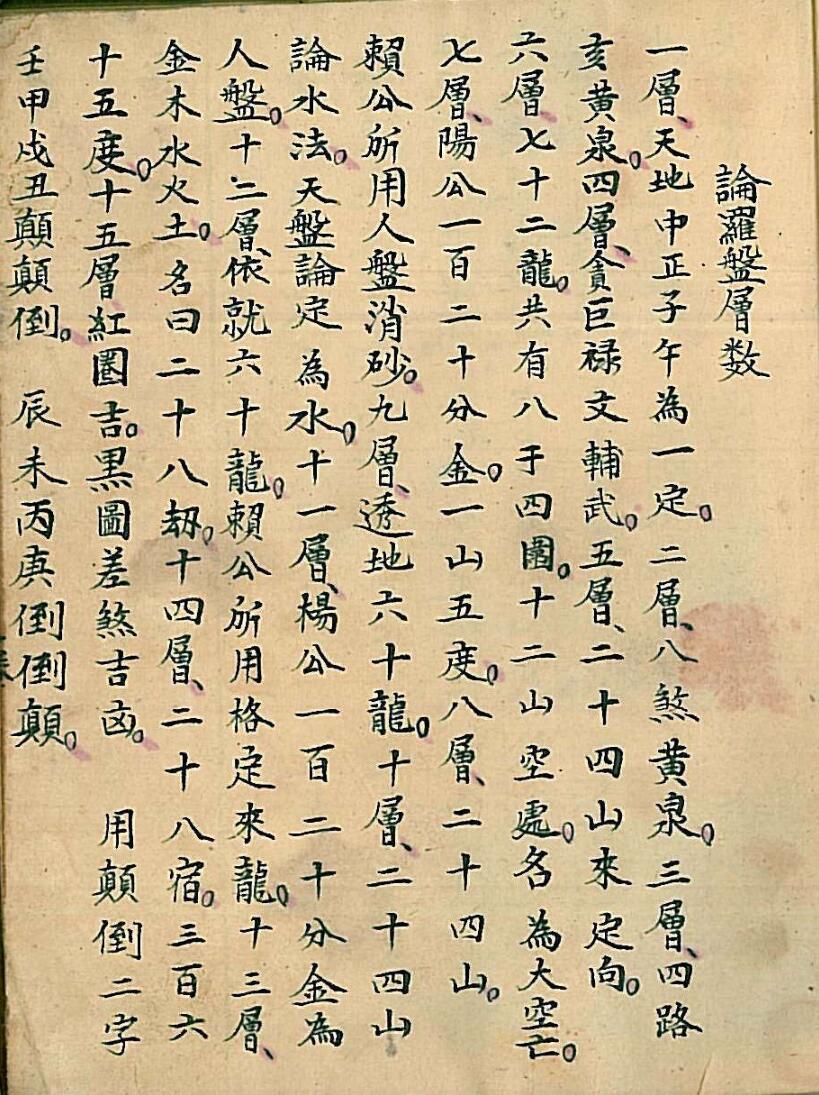 論羅盤層数
一層、天地中正子午為一定。二層、八煞黄泉。三層、四路
亥黄泉。四層、貪巨禄文輔武。五層、二十四山來定向。
六層七十二龍。共有八于四圍。十二山空處。名為大空亡。
七層、陽公一百二十分金。一山五度。八層、二十四山。
賴公所用人盤消砂。九層、透地六十龍。十層、二十四山
論水法。天盤論定為水。十一層、楊公一百二十分金為
人盤。十二層、依就六十龍。賴公所用格定來龍。十三層、
金木水火土。名曰二十八劫。十四層、二十八宿。三百六
十五度。十五層紅圈吉。黑圖差煞吉凶。 用顛倒二字
壬甲戍丑顛顛倒。 辰未丙庚倒倒顛。